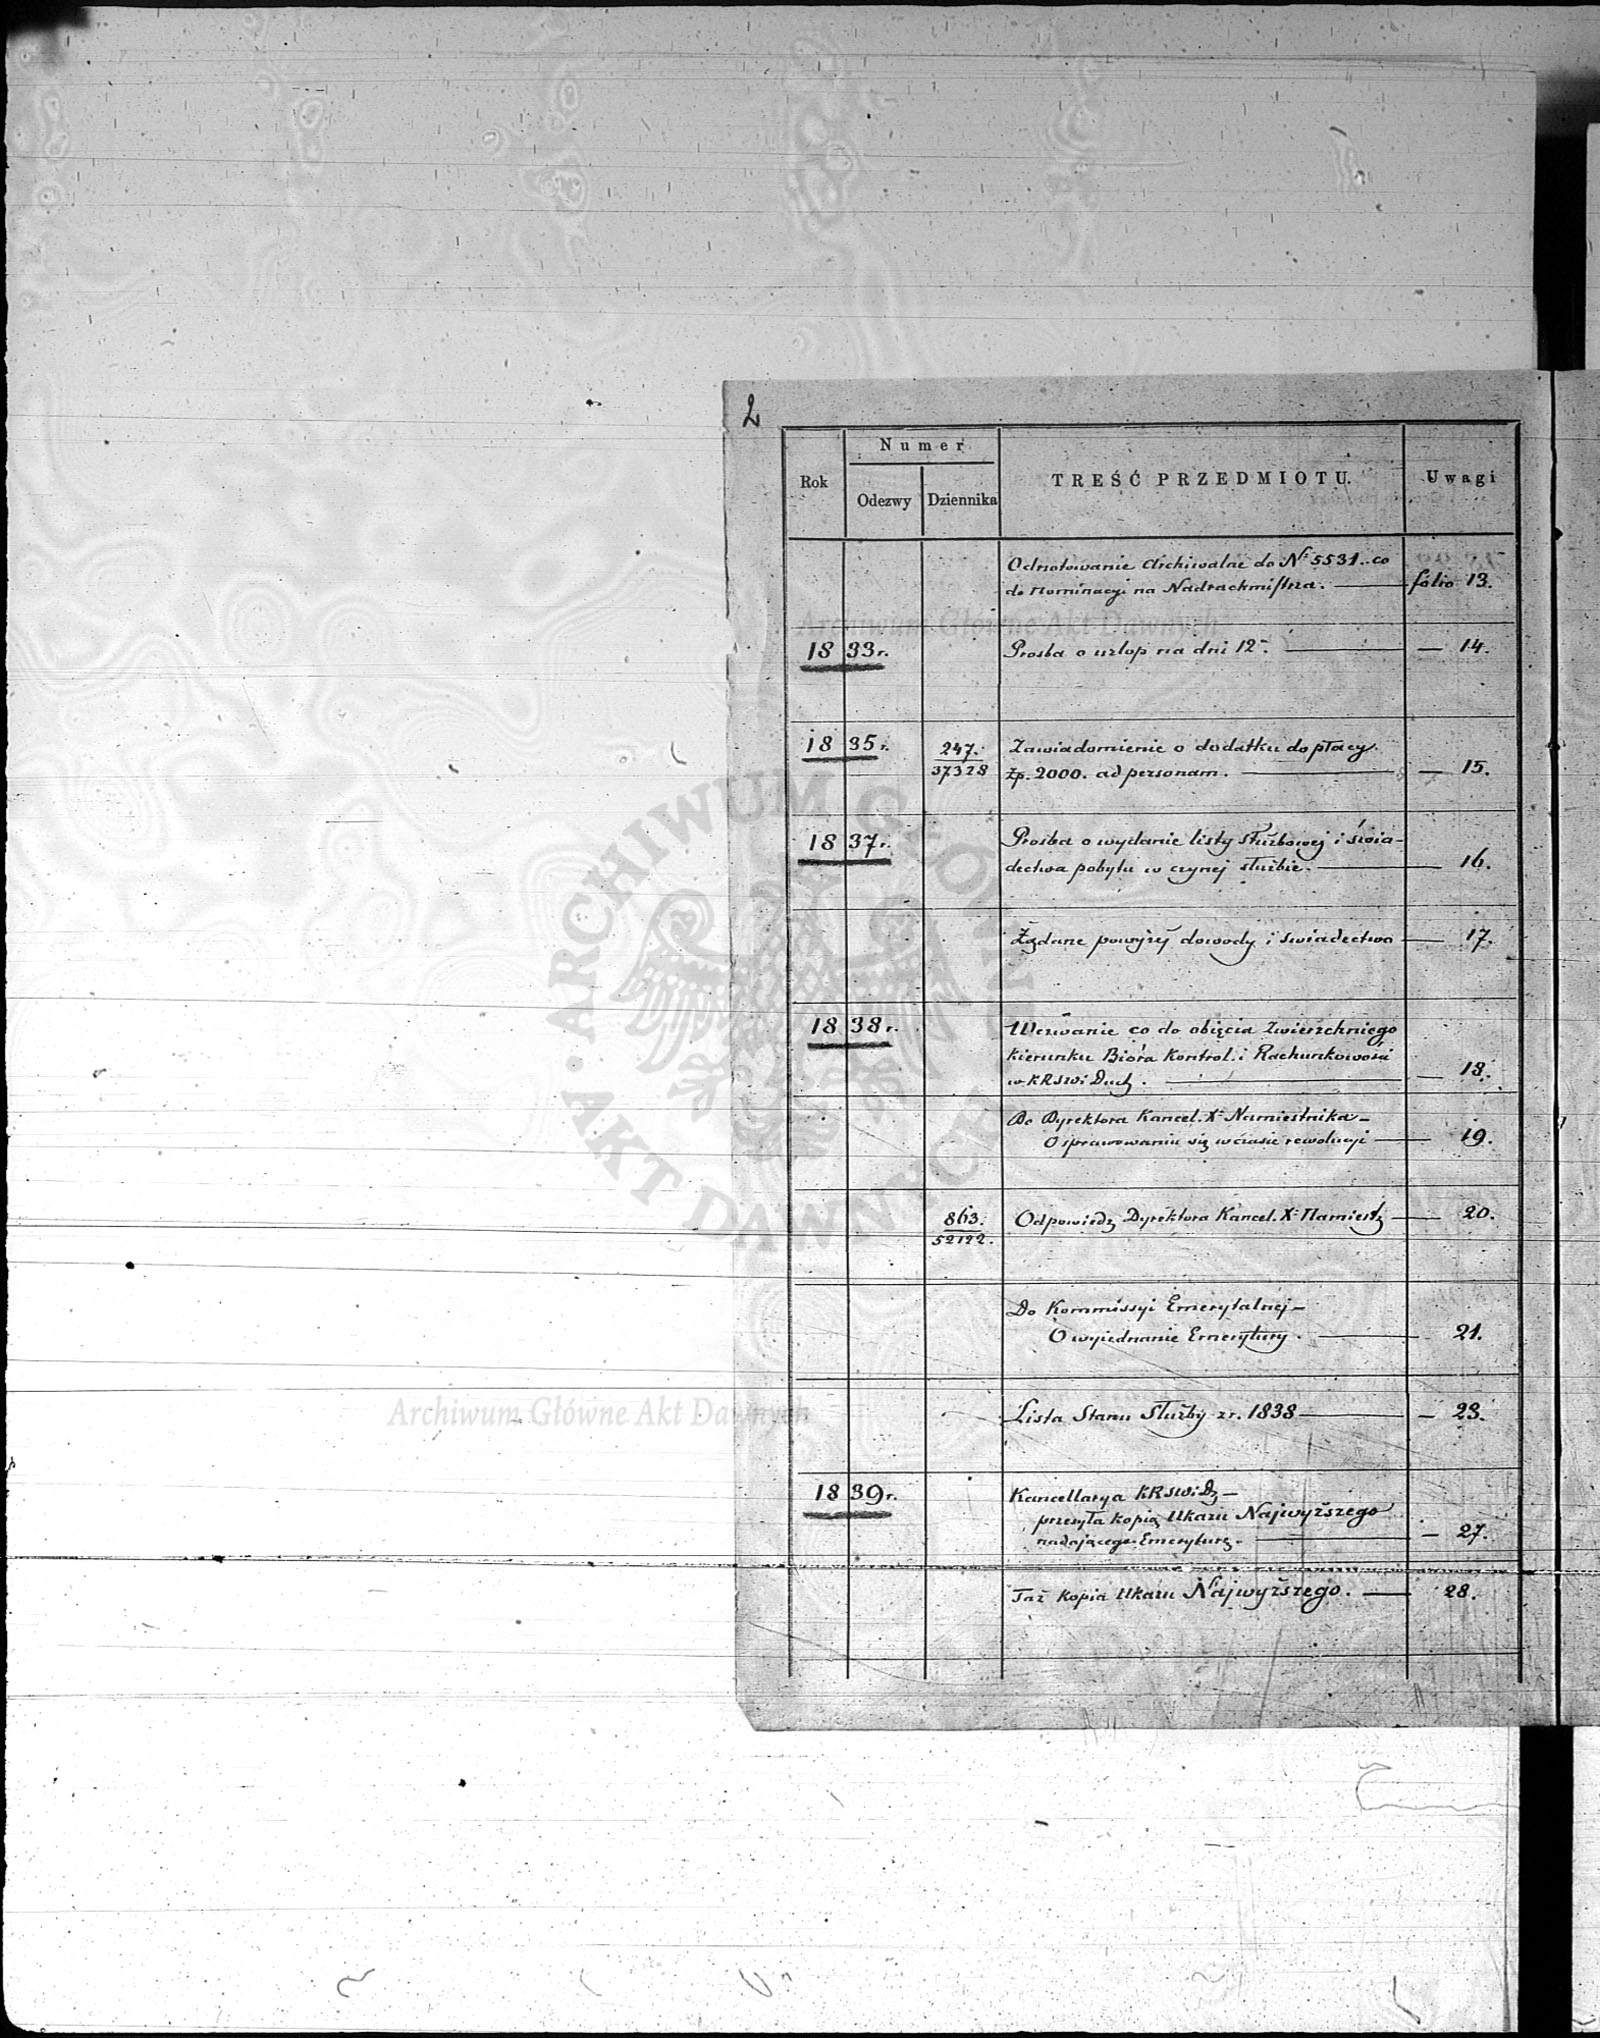 2
Numer
Rok
Odezwy
Dziennika
TREŚĆ PRZEDMIOTU.
Uwagi
Odnotowanie Archiwalne do № 5531. co
do Nominacyi na Nadrachmistrza. — folio 13.
1833 r.
Prośba o urlop na dni 12. — 14.
1835 r.
247.
37328
Zawiadomienie o dodatku do płacy
Złp. 2000. ad personam. — 15.
1837 r.
Prośba o wydanie listy służbowej i świa-
dectwa pobytu w czynej służbie. — 16.
Żądane powyżej dowody i świadectwa — 17.
1838 r.
Wezwanie co do objęcia Zwierzchniego
Kierunku Bióra Kontrol. i Rachunkowości
w KRSWi Duch. — 18.
Do Dyrektora Kancel. Xa Namiestnika —
O sprawowaniu się w czasie rewolucyi — 19.
863.
52122.
Odpowiedz Dyrektora Kancel. Xa Namiest — 20.
Do Kommissyi Emerytalnej —
O wyjednanie Emerytury. — 21.
Lista Stanu Służby z r. 1838 — 23.
1839 r.
Kancellarya KRSWiD —
przesyła kopią Ukazu Najwyższego
nadającego Emeryturę. — 27.
Taż kopia Ukazu Najwyższego. — 28.
Archiwum Główne Akt Dawnych
ARCHIWUM GŁÓWNE AKT DAWNYCH
Archiwum Główne Akt Dawnych